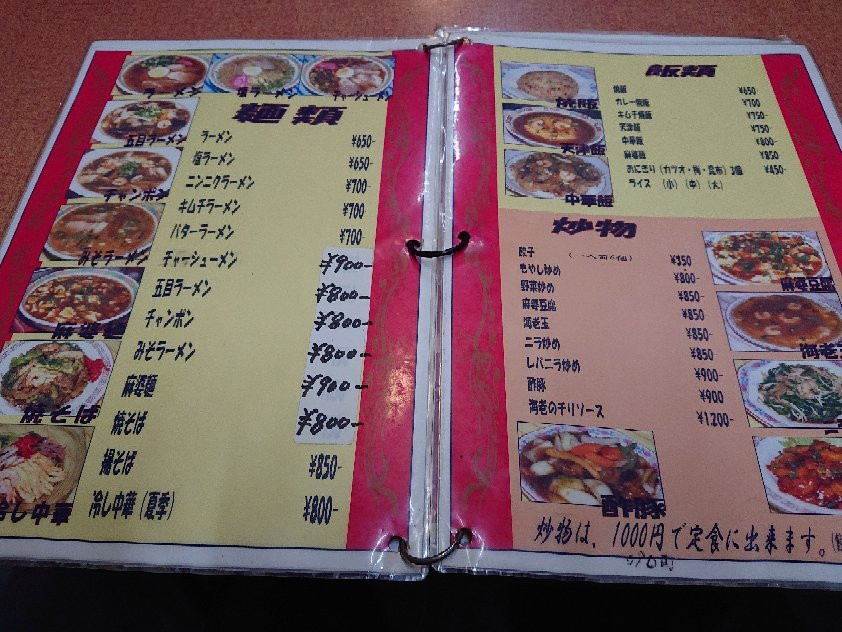 ラーメン 塩ラーメン チャーシューメン
麺類
五目ラーメン
チャンポン
みそラーメン
麻婆麺
焼そば
冷し中華
ラーメン ¥650-
塩ラーメン ¥650
ニンニクラーメン ¥700-
キムチラーメン ¥700
バターラーメン ¥700
チャーシューメン ¥900-
五目ラーメン ¥800-
チャンポン ¥800-
みそラーメン ¥800-
麻婆麺 ¥900-
焼そば ¥800-
揚そば ¥850-
冷し中華(夏季) ¥800-
飯類
炒飯
天津飯
中華飯
焼飯 ¥650-
カレー焼飯 ¥700
キムチ焼飯 ¥750-
天津飯 ¥750-
中華飯 ¥800-
麻婆飯 ¥850
おにぎり(カツオ・梅・昆布)3個 ¥450-
ライス (小)(中)(大)
炒物
餃子 (一人前6個) ¥350
もやし炒め ¥800-
野菜炒め ¥850-
麻婆豆腐 ¥850
海老玉 ¥850-
ニラ炒め ¥850
レバニラ炒め ¥900-
酢豚 ¥900
海老のチリソース ¥1,200-
麻婆豆腐
海老玉
酢豚
炒物は、1000円で定食に出来ます。